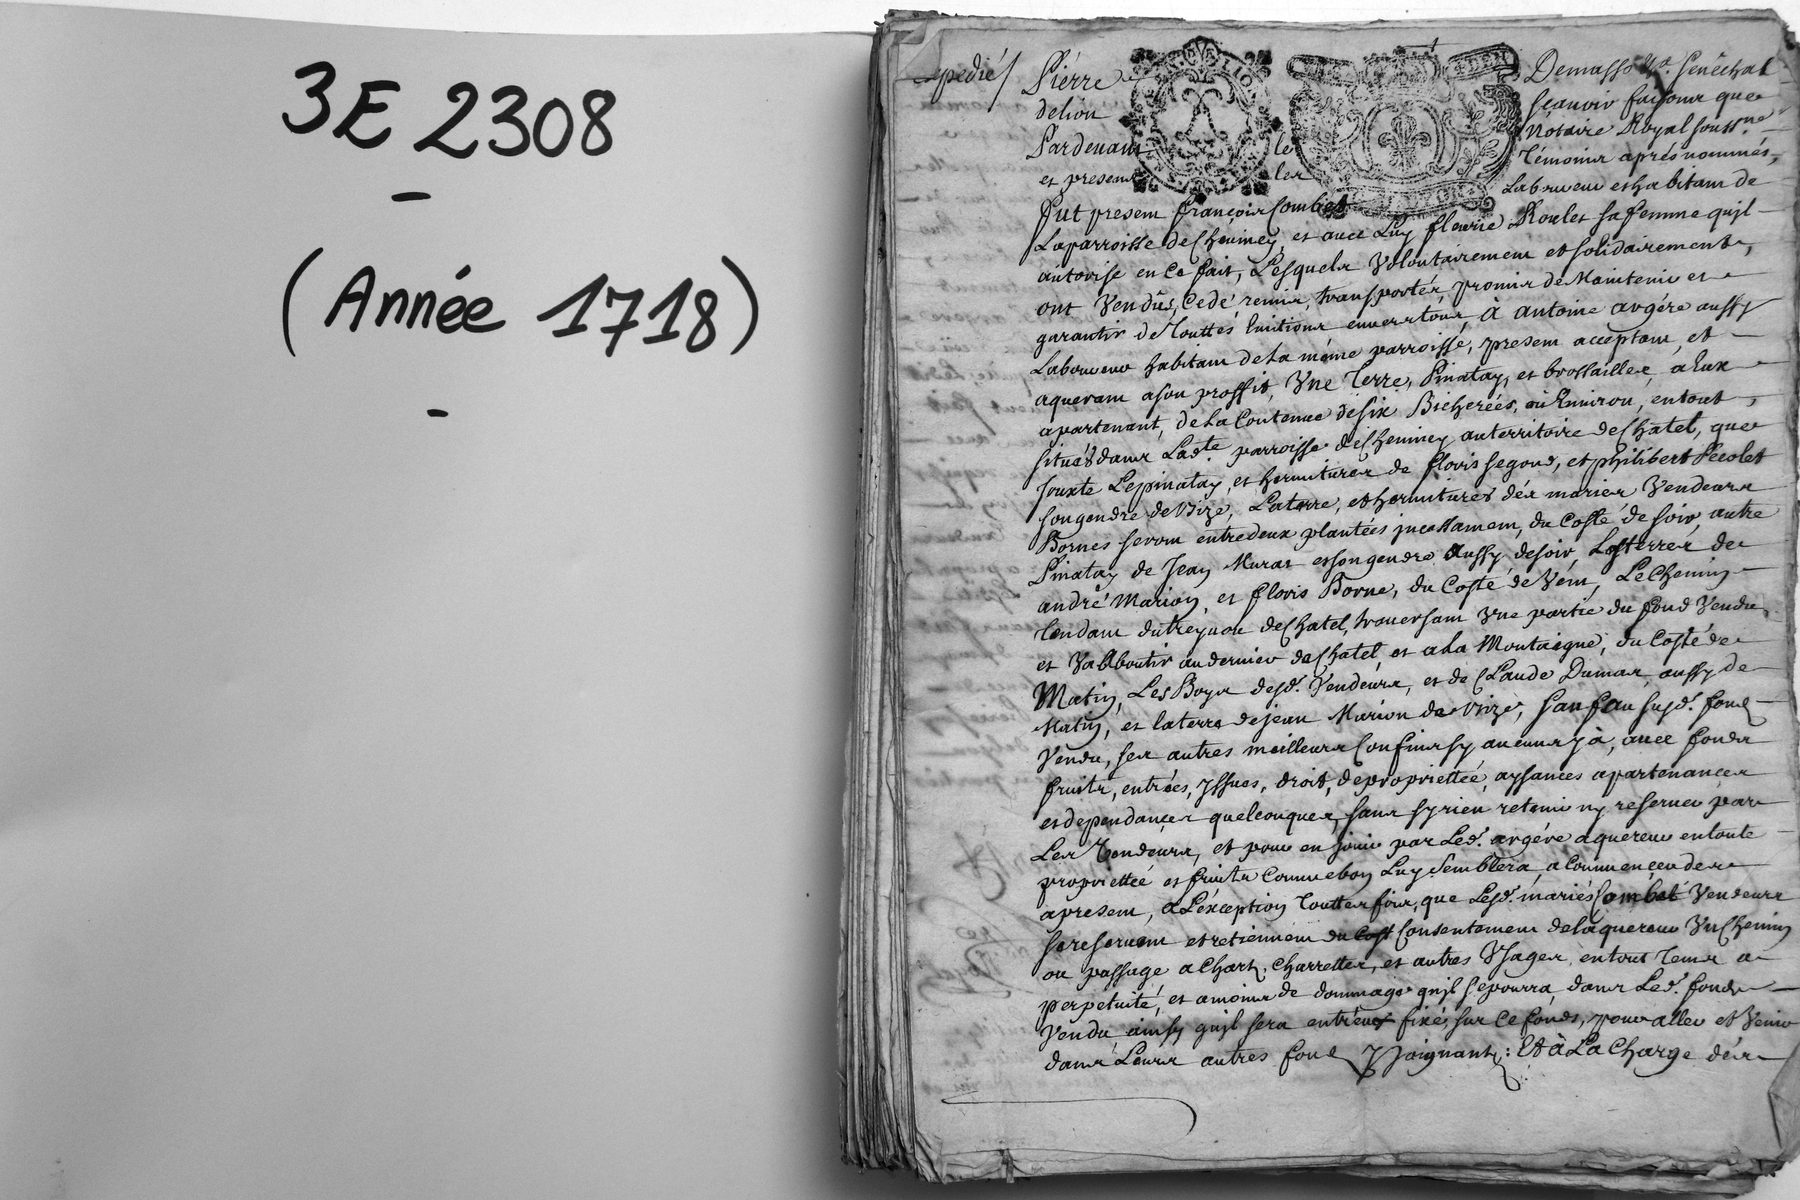 3E 2308
-
(Année 1718)
-
pedié/ Pierre Demasso Sénéchal
delion Scavoir faisons que
Pardevant le Notaire Royal soussné
et presens les Témoins aprés nommés,
fut present françois Combet Laboureur et habitant de
Laparroisse de Cheviney, et avec Luy fleurie Roulet sa femme quil
autorise en ce fait, Lesquels Volontairement et solidairement,
ont Vendus, Cedé remis, transportés, promis de Maintenir et
garantir de Touttes Evictions envers tous, À antoine argére aussy
Laboureur habitant dela méme parroisse, present acceptant, et
aquerant ason proffit, Vne Terre, Pinatay, et brossailles, a Eux
apartenant, dela Contenue désix Bicherées, où Environ, entout,
situés dans Ladte. parroisse de Cheviney auterritoire de Chatel, que
Jouxte Lepinatay, et hermitures de floris segond, et philibert Pecolet
songendre de Vize, Laterre, et hermitures dés mariés Vendeurs
Bornes seront entredeux plantées incessamment, du Costé de soir, autre
Pinatay de Jean Murat et songendre Aussy desoir, Lesterres de
andré Marion, et floris Borne, du Costé de Vent, LeChemin
Tendant du treynou deChatel, traversant Vne partie du fond Vendu,
et Vabboutir audernier deChatel, et ala Montaigne, du Costé de
Matin, Les Boys desd. Vendeurs, et de Claude Dumas, aussy de
Matin, et laterre dejean Marion de Vizé, sauf au susd. fond
Vendu, ses autres meilleurs Confins sy aucuns y à, avec fonds
fruits, entrées, yssues, droit, depropriettée, aysances apartenances
et dependances quelconques, sans syrien retenir ny reserver par
Les Vendeurs, et pour en jouir par Led. argére aquereur entoute
propriettée et fruits Comme bon Luy semblera, a Commencer dés
apresent, a L'éxception Touttesfois, que Lesd. mariés Combet Vendeurs
sereservent et retiennent du Consentement delaquereur Vn Chemin
ou passage a Chars, Charrettes, et autres Vsages, entout Tems a
perpetuité, et amoins de dommage quil sepourra, dans Led. fonds
Vendu, ainsy quil sera entreux fixé, sur Ce fonds, pour aller et Venir
dans Leurs autres fond Yjoignants: Et à La Charge dés